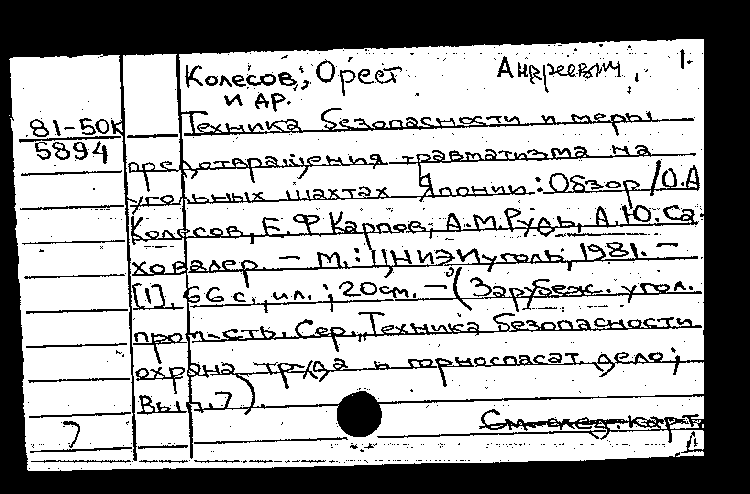 Колесов, Орест Андреевич, 1.
и др.
81-50к Техника безопасности и меры
5894 предотвращения травматизма на
угольных шахтах Японии: Обзор / О.А
Колесов, Е.Ф Карпов, А.М.Рудь, А.Ю.Са-
ховалер. — М.: ЦНИЭИуголь, 1981. —
[1], 66 с., ил.; 20см. — (Зарубеж. угол.
пром-сть. Сер. „Техника безопасности
охрана труда и горноспасат. дело;
Вып. 7).
См. след. карт.
7